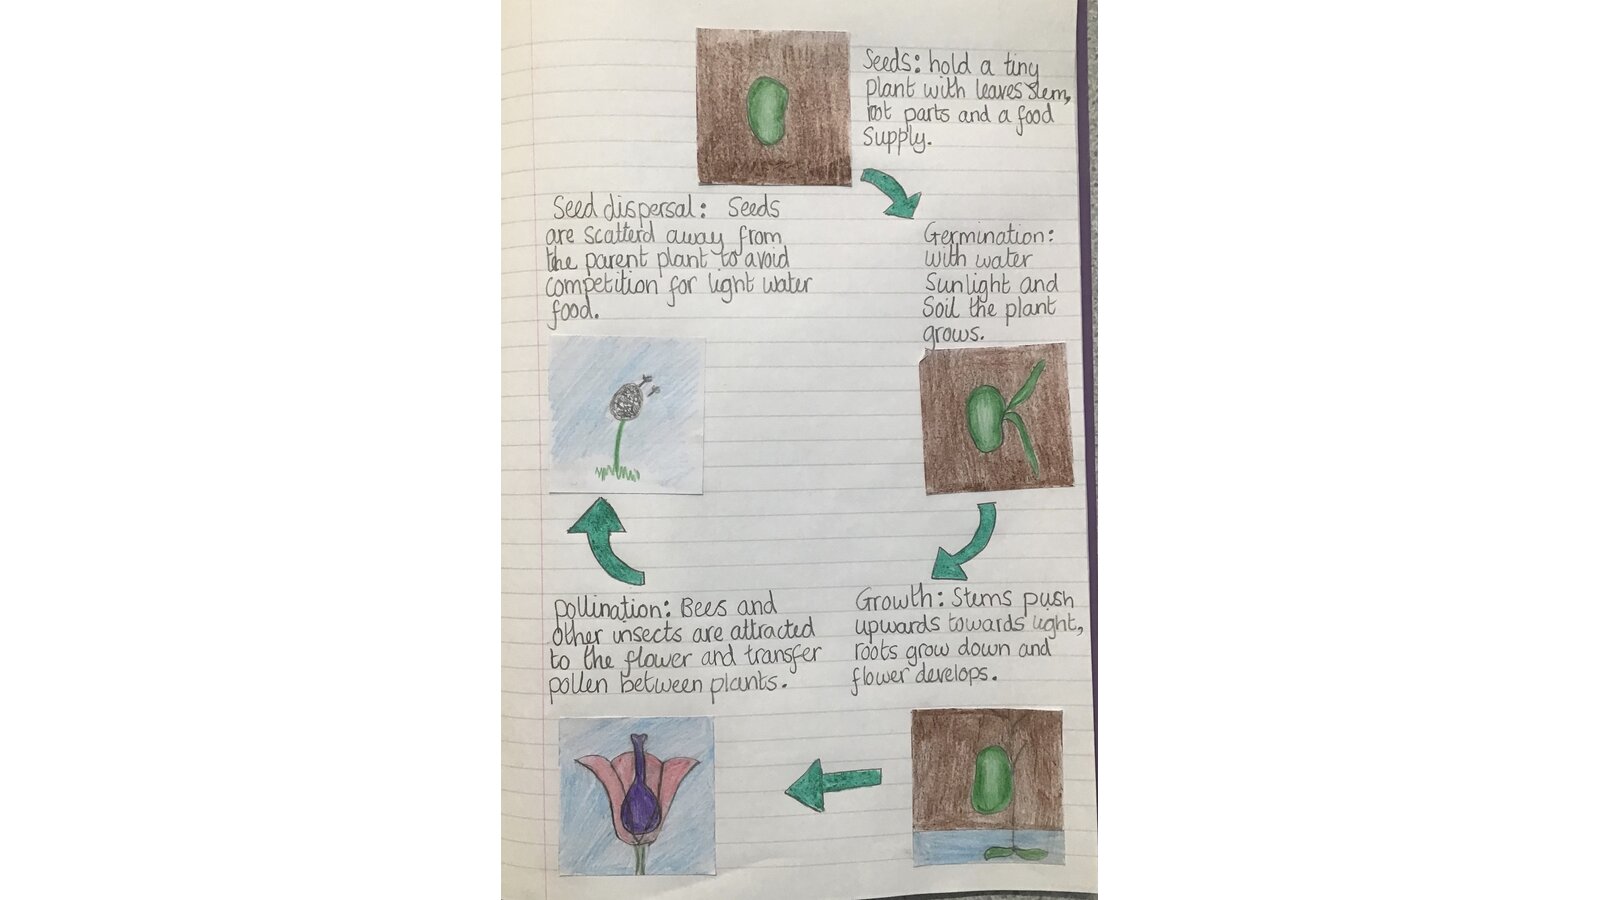 Seeds: hold a tiny
plant with leaves stem,
root parts and a food
Supply.
Germination:
with water
Sunlight and
Soil the plant
grows.
Growth: Stems push
upwards towards light,
roots grow down and
flower develops.
pollination: Bees and
other insects are attracted
to the flower and transfer
pollen between plants.
Seed dispersal: Seeds
are scatterd away from
the parent plant to avoid
competition for light water
food.